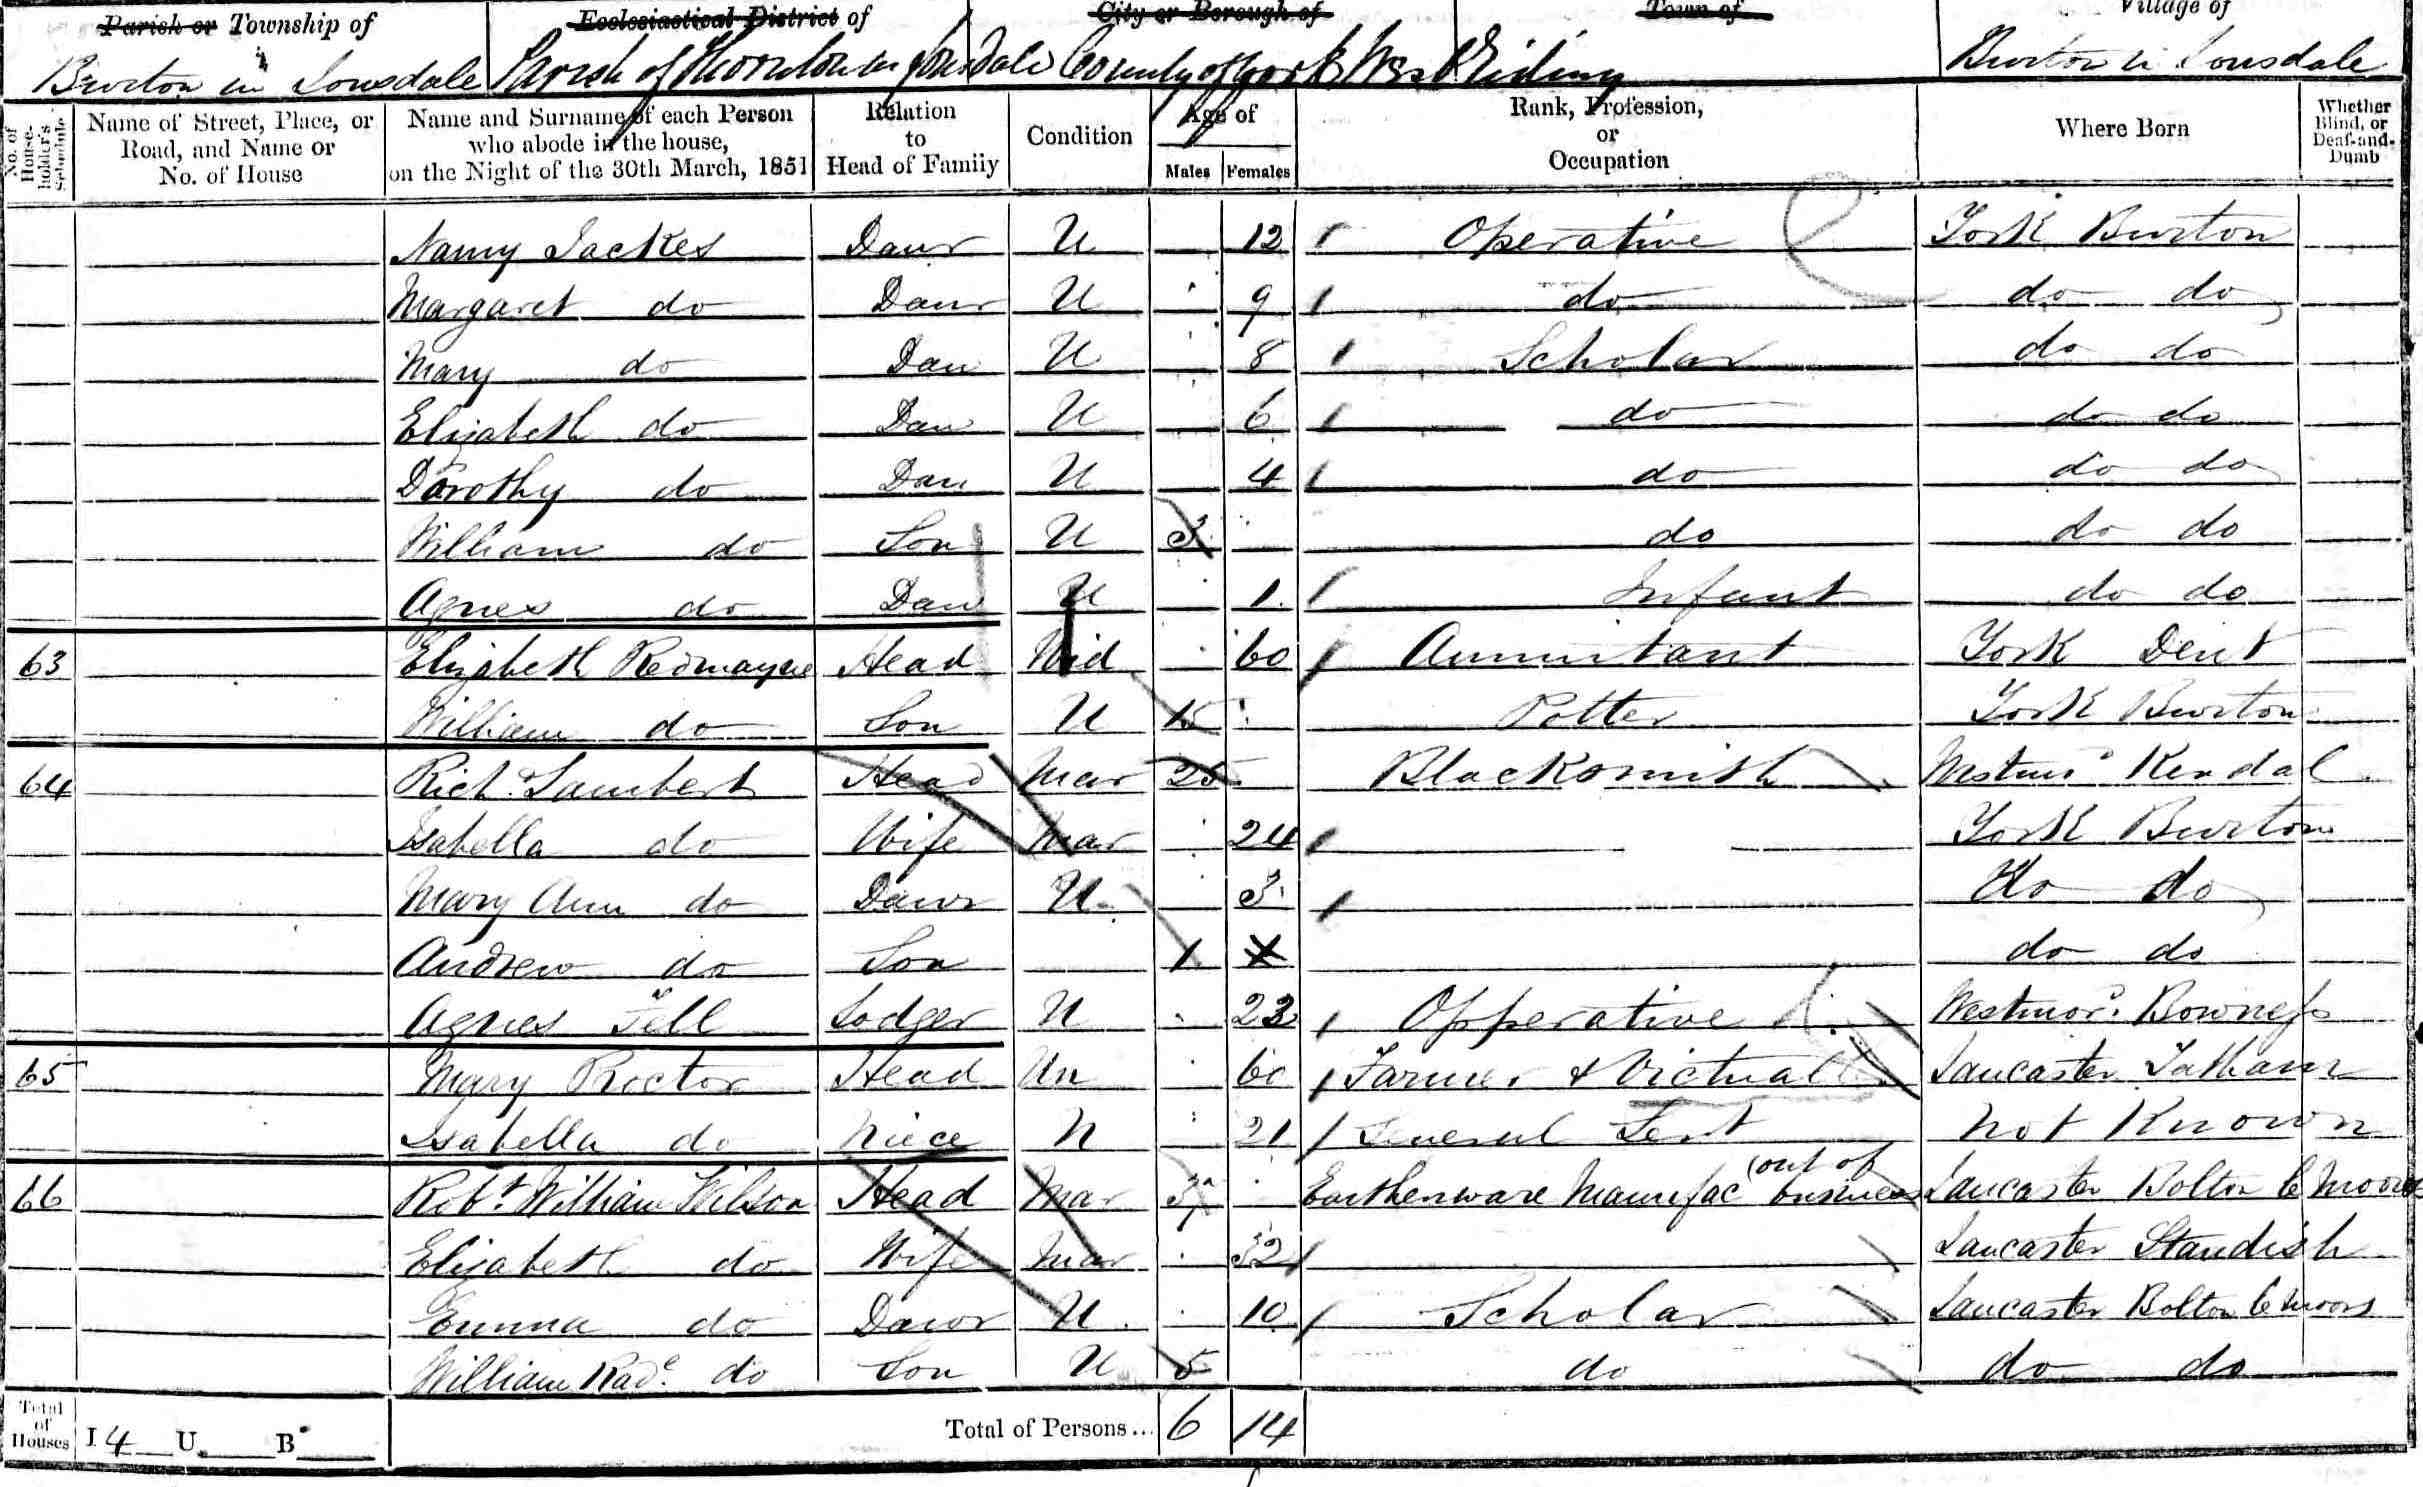 Parish or Township of Ecclesiastical District of City or Borough of Town of Village of
Burton in Lonsdale Parish of Thornton in Lonsdale County of York West Riding Burton in Lonsdale
No. of House-holder's Schedule
Name of Street, Place, or Road, and Name or No. of House
Name and Surname of each Person who abode in the house, on the Night of the 30th March, 1851
Relation to Head of Family
Condition
Age of
Males Females
Rank, Profession, or Occupation
Where Born
Whether Blind, or Deaf-and-Dumb
Nancy Jackes Daur U 12 Operative York Burton
Margaret do Daur U 9 do do do
Mary do Dau U 8 Scholar do do
Elizabeth do Dau U 6 do do do
Dorothy do Dau U 4 do do do
William do Son U 3 do do do
Agnes do Dau U 1 Infant do do
63 Elizabeth Redmayne Head Wid 60 Annuitant York Dent
William do Son U 15 Potter York Burton
64 Richd Lambert Head Mar 25 Blacksmith Westmd Kendal
Isabella do Wife Mar 24 York Burton
Mary Ann do Daur U 3 do do
Andrew do Son 1 do do
Agnes Tell Lodger U 23 Opperative Westmord Bowness
65 Mary Proctor Head Un 60 Farmer & Victual Lancaster Tatham
Isabella do Niece U 21 General Sert Not Known
66 Robt William Wilson Head Mar 37 Earthenware Manufac (out of business Lancaster Bolton le Moors
Elizabeth do Wife Mar 32 Lancaster Standish
Emma do Daur U 10 Scholar Lancaster Bolton le Moors
William Rade do Son U 5 do do do
Total of Houses I 4 U B Total of Persons... 6 14